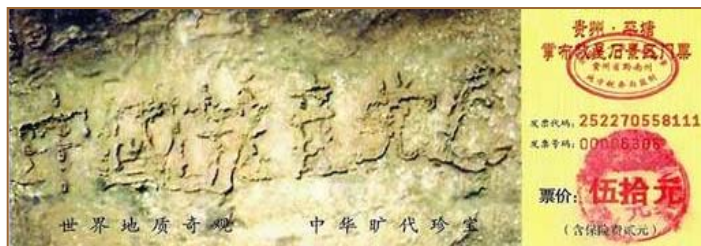 中國共产党亡
世界地质奇观 中华旷代珍宝
贵州·平塘
掌布救星石景区门票
贵州省黔南州
发票代码:252270558111
发票号码:00006306
票价:伍拾元
(含保险费贰元)